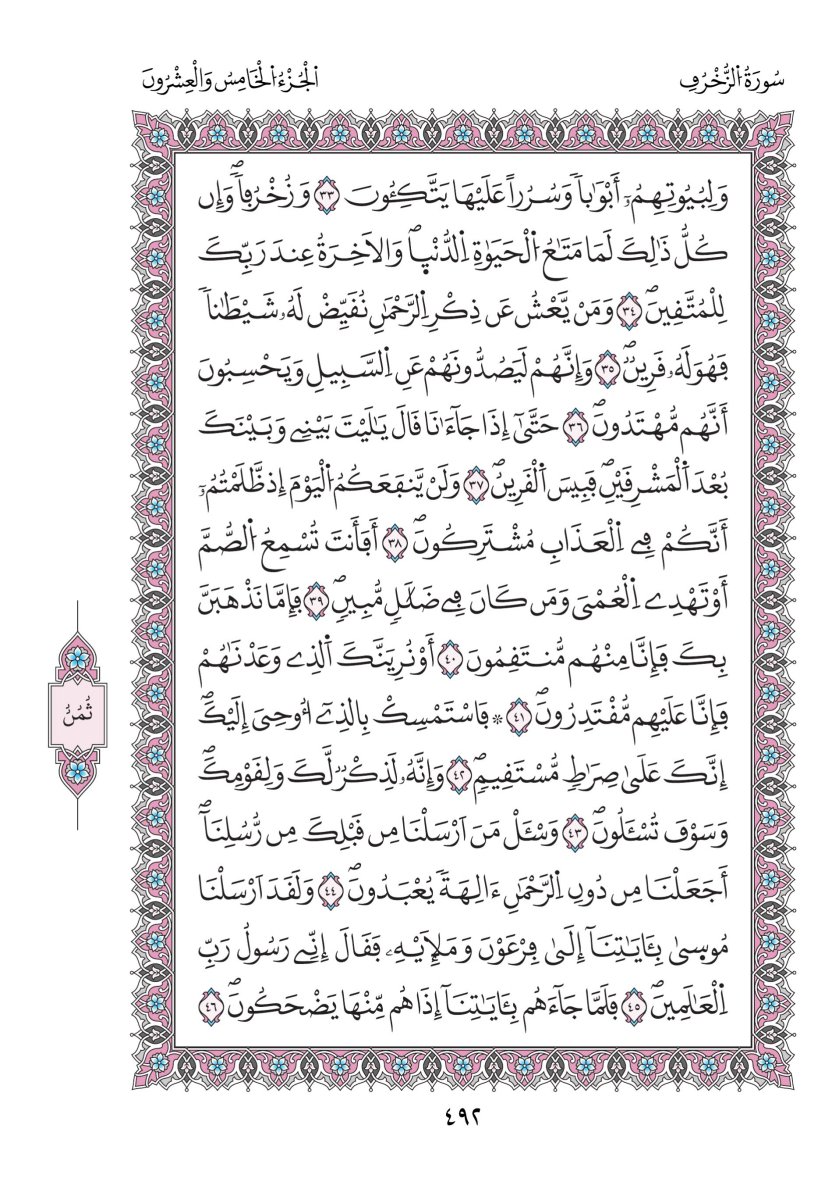 سُورَةُ الزُّخْرُفِ
الْجُزْءُ الْخَامِسُ وَالْعِشْرُونَ
وَلِبُيُوتِهِمُۥٓ أَبْوَٰباٗ وَسُرُراً عَلَيْهَا يَتَّكِـُٔونَ ٣٣ وَزُخْرُفاٗۖ وَإِن
كُلُّ ذَٰلِكَ لَمَا مَتَٰعُ اُ۬لْحَيَوٰةِ اِ۬لدُّنْي۪اۖ وَالَاخِرَةُ عِندَ رَبِّكَ
لِلْمُتَّقِينَۖ ٣٤ وَمَنْ يَّعْشُ عَن ذِكْرِ اِ۬لرَّحْمَٰنِ نُقَيِّضْ لَهُۥ شَيْطَٰناٗ
فَهُوَ لَهُۥ قَرِينٞۖ ٣٥ وَإِنَّهُمْ لَيَصُدُّونَهُمْ عَنِ اِ۬لسَّبِيلِ وَيَحْسِبُونَ
أَنَّهُم مُّهْتَدُونَۖ ٣٦ حَتَّىٰٓ إِذَا جَآءَٰنَا قَالَ يَٰلَيْتَ بَيْنِے وَبَيْنَكَ
بُعْدَ اَ۬لْمَشْرِقَيْنِۖ فَبِيسَ اَ۬لْقَرِينُۖ ٣٧ وَلَنْ يَّنفَعَكُمُ اُ۬لْيَوْمَ إِذ ظَّلَمْتُمُۥٓ
أَنَّكُمْ فِے اِ۬لْعَذَابِ مُشْتَرِكُونَۖ ٣٨ أَفَأَنتَ تُسْمِعُ اُ۬لصُّمَّ
أَوْ تَهْدِے اِ۬لْعُمْيَ وَمَن كَانَ فِے ضَلَٰلٖ مُّبِينٖۖ ٣٩ فَإِمَّا نَذْهَبَنَّ
بِكَ فَإِنَّا مِنْهُم مُّنتَقِمُونَ ٤٠ أَوْ نُرِيَنَّكَ اَ۬لذِے وَعَدْنَٰهُمْ
فَإِنَّا عَلَيْهِم مُّقْتَدِرُونَۖ ٤١ ۞ فَاسْتَمْسِكْ بِالذِےٓ أُوحِيَ إِلَيْكَۖ
إِنَّكَ عَلَىٰ صِرَٰطٖ مُّسْتَقِيمٖۖ ٤٢ وَإِنَّهُۥ لَذِكْرٞ لَّكَ وَلِقَوْمِكَۖ
وَسَوْفَ تُسْـَٔلُونَۖ ٤٣ وَسْـَٔلْ مَنَ اَرْسَلْنَا مِن قَبْلِكَ مِن رُّسُلِنَآۖ
أَجَعَلْنَا مِن دُونِ اِ۬لرَّحْمَٰنِ ءَالِهَةٗ يُعْبَدُونَۖ ٤٤ وَلَقَدَ اَرْسَلْنَا
مُوس۪ىٰ بِـَٔايَٰتِنَآ إِلَىٰ فِرْعَوْنَ وَمَلَإِيْهِۦ فَقَالَ إِنِّے رَسُولُ رَبِّ
اِ۬لْعَٰلَمِينَۖ ٤٥ فَلَمَّا جَآءَهُم بِـَٔايَٰتِنَآ إِذَا هُم مِّنْهَا يَضْحَكُونَۖ ٤٦
ثُمُنُ
٤٩٢